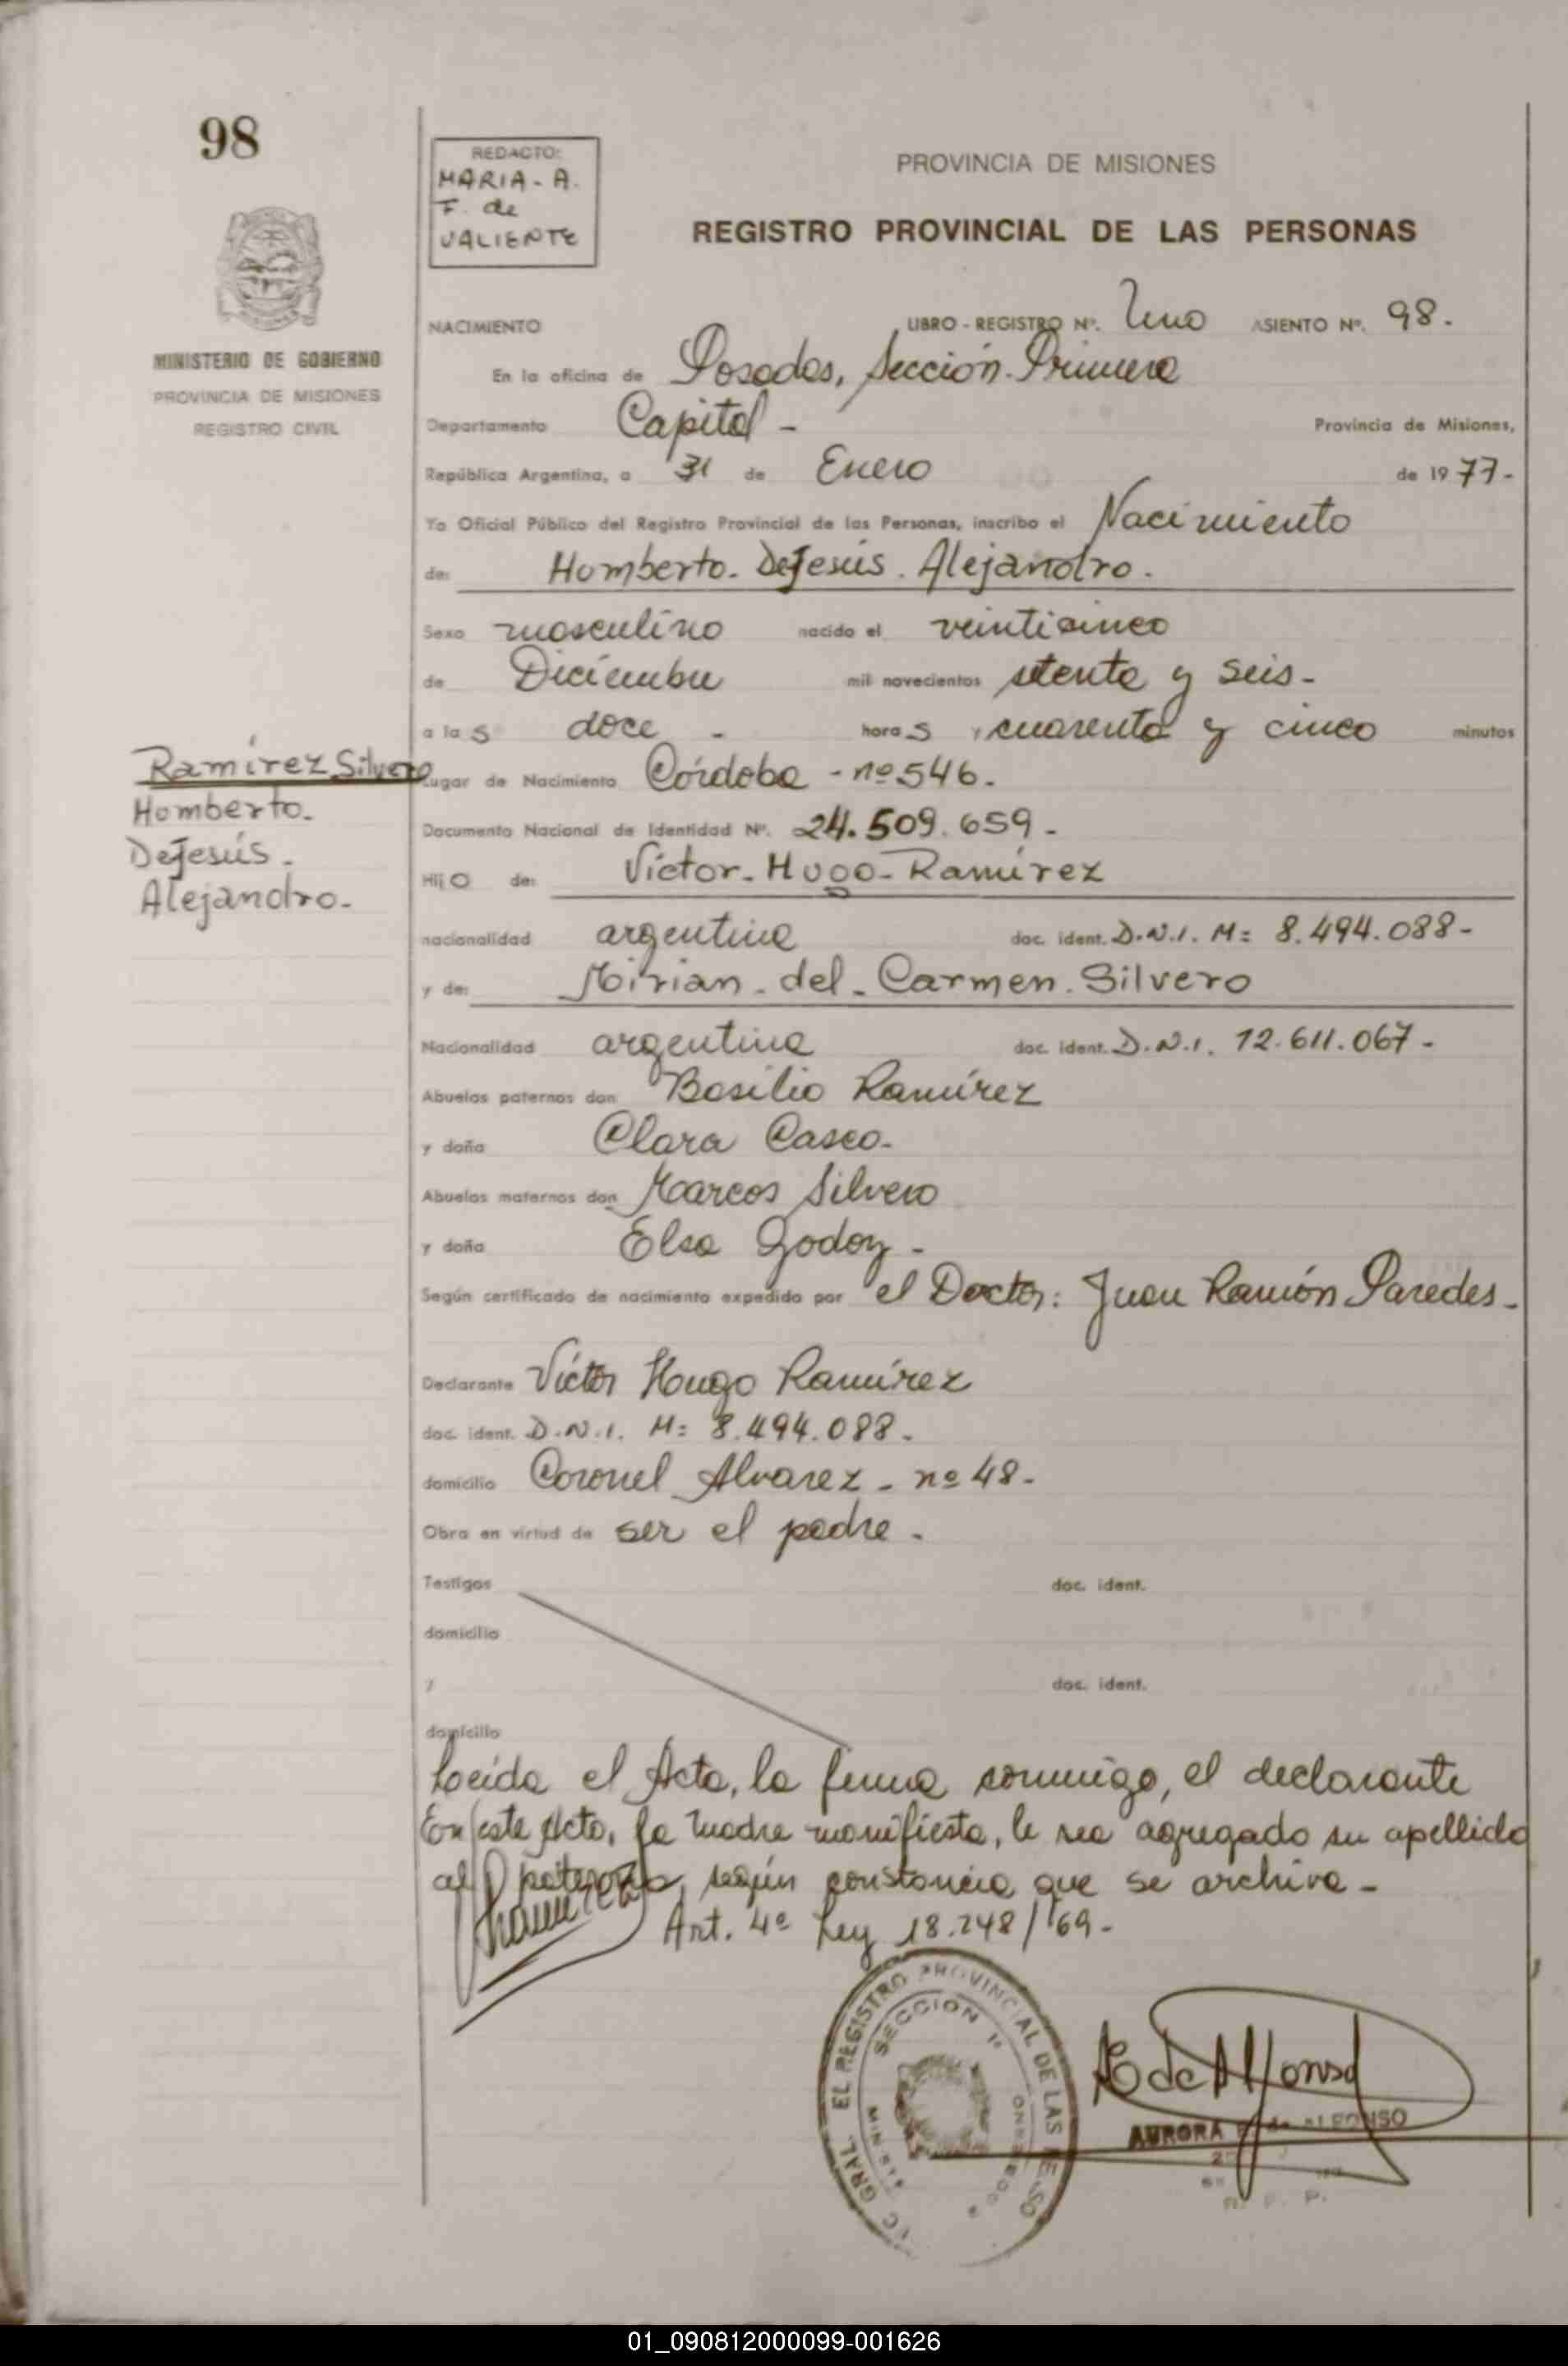 98
REDACTO:
MARIA - A.
F. de
VALIENTE
PROVINCIA DE MISIONES
REGISTRO PROVINCIAL DE LAS PERSONAS
MINISTERIO DE GOBIERNO
PROVINCIA DE MISIONES
REGISTRO CIVIL
NACIMIENTO LIBRO - REGISTRO Nº. Uno ASIENTO Nº. 98.
En la oficina de Posadas, Sección. Primera
Departamento Capital - Provincia de Misiones,
República Argentina, a 31 de Enero de 1977-
Yo Oficial Público del Registro Provincial de las Personas, inscribo el Nacimiento
de: Homberto. DeJesús. Alejandro.
Sexo masculino nacido el veinticinco
de Diciembre mil novecientos setenta y seis-
a las doce - horas y cuarenta y cinco minutos
Ramírez Silvero
Homberto.
DeJesús.
Alejandro.
Lugar de Nacimiento Córdoba - nº 546.
Documento Nacional de Identidad Nº. 24.509.659-
Hijo de: Víctor-Hugo-Ramírez
nacionalidad argentina doc. ident. D.N.I. M: 8.494.088-
y de: Mirian-del-Carmen.Silvero
Nacionalidad argentina doc. ident. D.N.I. 12.611.067-
Abuelos paternos don Basilio Ramírez
y doña Clara Casco-
Abuelos maternos don Marcos Silvero
y doña Elsa Godoy-
Según certificado de nacimiento expedido por el Doctor: Juan Ramón Paredes-
Declarante Víctor Hugo Ramírez
doc. ident. D.N.I. M: 8.494.088.
domicilio Coronel Alvarez - nº 48-
Obra en virtud de ser el padre.
Testigos doc. ident.
domicilio
y doc. ident.
domicilio
Leída el Acta, la firma conmigo, el declarante
En este Acto, la madre manifiesta, le sea agregado su apellido
al paterno, según constancia que se archiva-
Art. 4º Ley 18.248/69-
Ramirez
GRAL. EL REGISTRO PROVINCIAL DE LAS
SECCION 1ª
de Alfonso
AURORA de ALFONSO
01_090812000099-001626